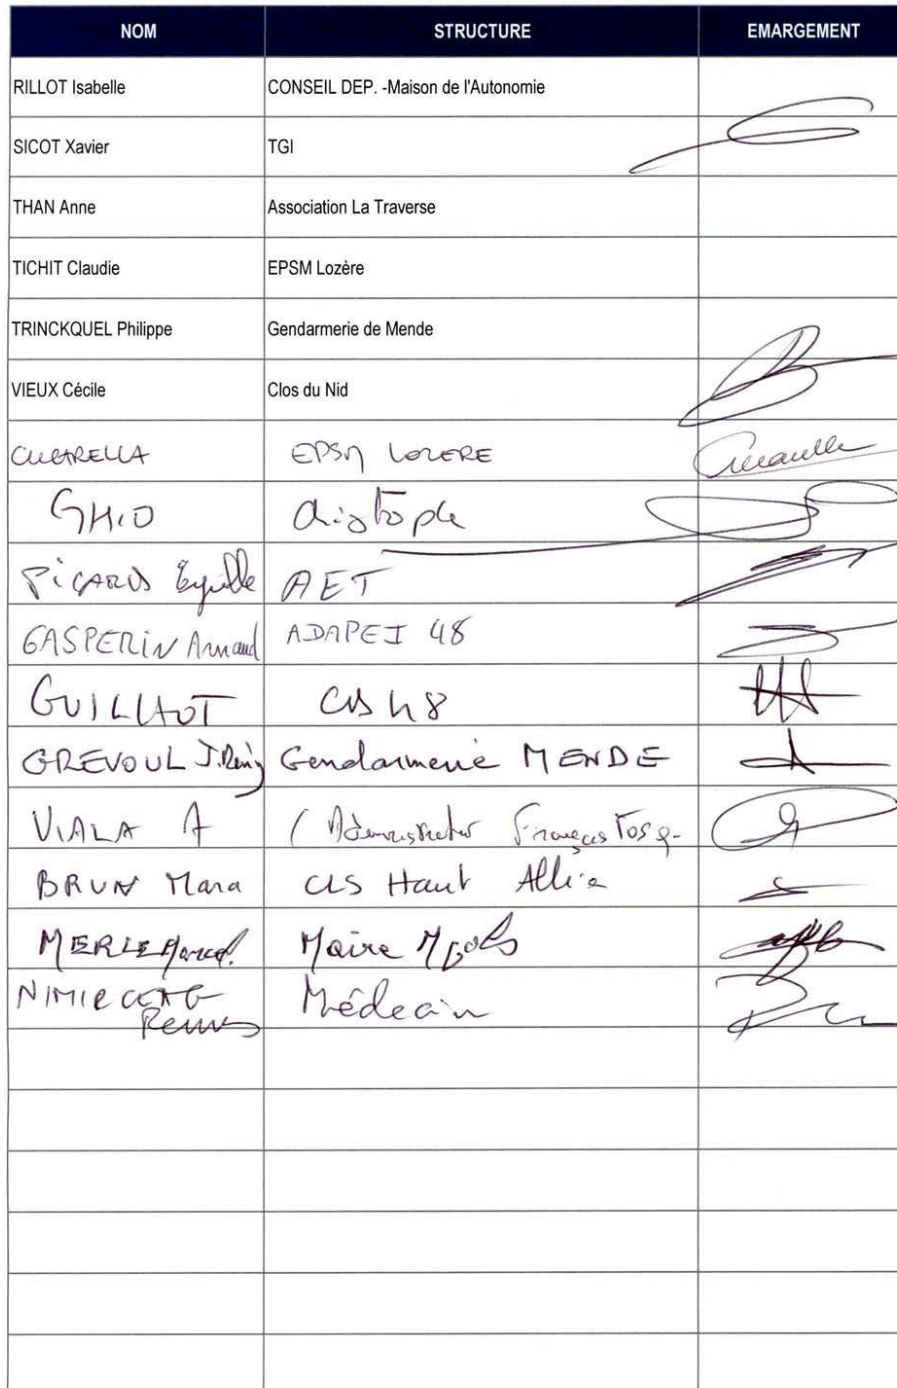 NOM STRUCTURE EMARGEMENT
RILLOT Isabelle CONSEIL DEP. -Maison de l'Autonomie
SICOT Xavier TGI
THAN Anne Association La Traverse
TICHIT Claudie EPSM Lozère
TRINCKQUEL Philippe Gendarmerie de Mende
VIEUX Cécile Clos du Nid
EPSM LOZERE
GHIO Christophe
PICARD AET
GASPERIN Arnaud ADAPEI 48
GUILLHOT 48
GREVOUL J. Rémy Gendarmerie MENDE
VIALA A François Tosq-
BRUN Mara CLS Haut
MERLE Marcel Maire
Médecin